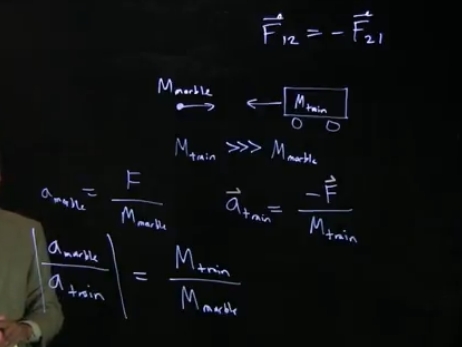 F⃗₁₂ = - F⃗₂₁
M marble
M train
M train >>> M marble
a marble = F / M marble
a⃗ train = -F⃗ / M train
| a marble / a train | = M train / M marble